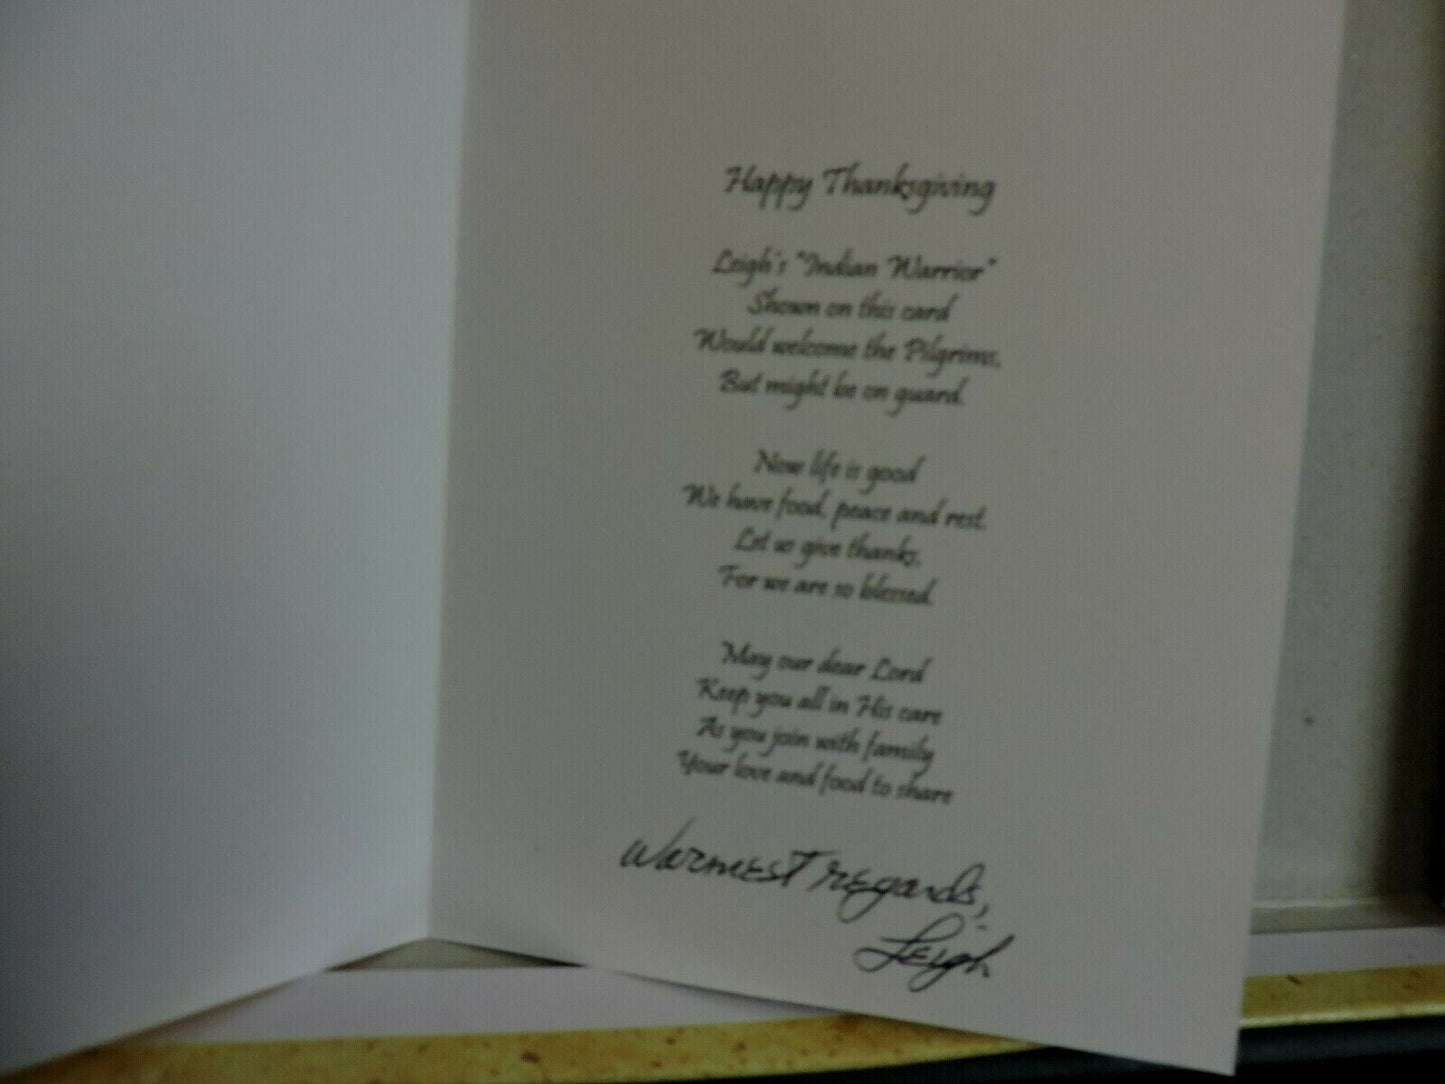 Happy Thanksgiving
Leigh's "Indian Warrior"
Shown on this card
Would welcome the Pilgrims,
But might be on guard.
Now life is good
We have food, peace and rest.
Let us give thanks,
For we are so blessed.
May our dear Lord
Keep you all in His care
As you join with family
Your love and food to share
Warmest regards,
Leigh